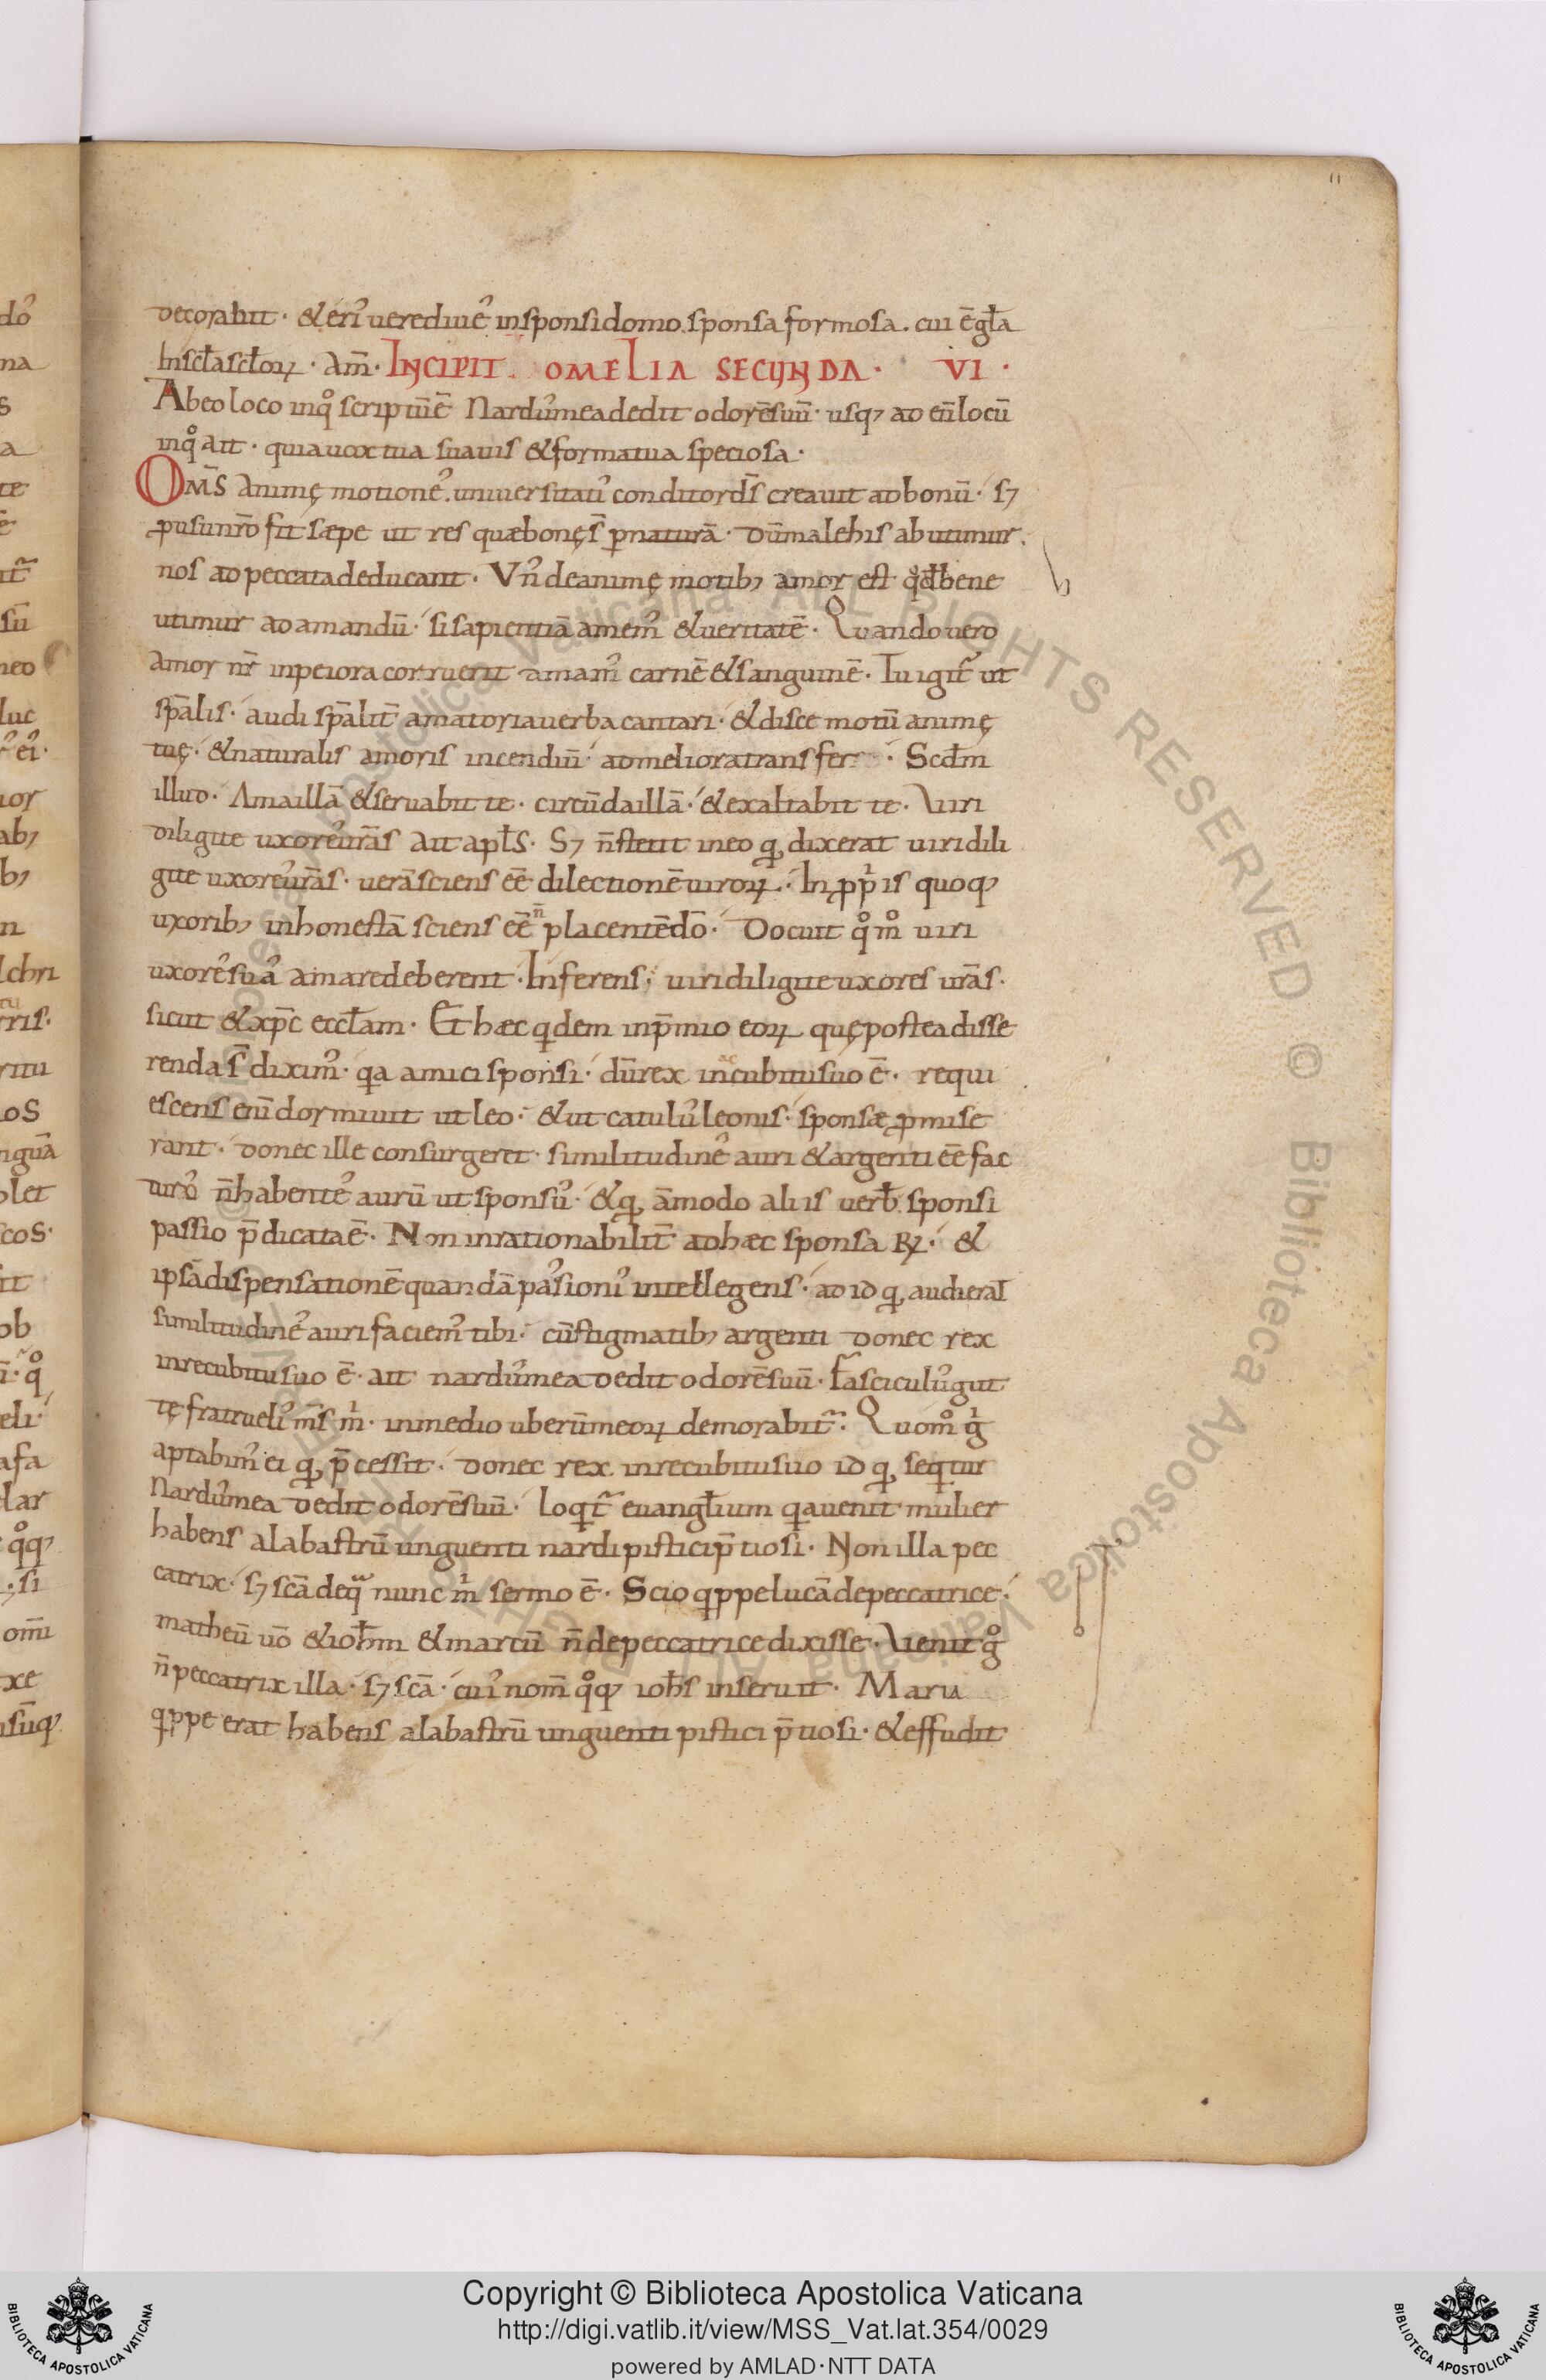 11
decorabit · & erı᷒ uere diue᷒ in sponsi domo sponsa formosa . cui ē gl̄a
In scl̄a scl̄oꝝ · am̄ · INCIPIT OMELIA SECUNDA · VI ·
Ab eo loco in qͦ scriptū ē Nardū mea dedit odorē suū · usq; ad eū locū
in qͦ ait · quia uox tua suauis & forma tua speciosa ·
OM̄S animę motione᷒ . uniuersitatı᷒ conditor d̄s creauit ad bonū · s;
ꝓ usu nr̄o fit sæpe ut res quæ bonę s̄t ꝑ naturā · dū male his abutimur .
nos ad peccata deducant · Vn̄ de animę motib; amor est qd̄ bene
utimur ad amandū · si sapientiā amem᷒ & ueritatē · Quando uero
amor nr̄ in peiora corruerit amam᷒ carnē & sanguinē · Tu igit᷑ ut
sp̄alis · audi sp̄alit̄ amatoria uerba cantari · & disce motū animę
tuę · & naturalis amoris incendiū · ad meliora transfer · Scd̄m
illud · Ama illā & seruabit te · circūda illā · & exaltabit te · Uiri
diligite uxore᷒ ur̄as ait apl̄s · S; n̄ stetit in eo q, dixerat uiri dili
gite uxore᷒ ur̄as · uerā sciens eē dilectionē uiroꝝ · In ꝓpris quoq;
uxorib; inhonestā sciens eē n̄ placentē dō · Docuit qͦmͦ uiri
uxore᷒ sua᷒ amare deberent · Inferens · uiri diligite uxores ur̄as ·
sicut & xp̄c eccl̄am · Et hæc qdem in p̄mio eoꝝ quę postea disse
renda s̄t dixim᷒ · qa amici sponsi · dū rex in accubitu suo ē · requi
escens eni dormiuit ut leo · & ut catulu᷒ leonis · sponsæ ꝓmise
rant · donec ille consurgeret · similitudine᷒ auri & argenti eē fac
turo᷒ n̄ habente᷒ aurū ut sponsu᷒ · & q, āmodo aliis uerb̄ sponsi
passio p̄dicata ē · Non inrationabilit̄ ad hæc sponsa ℞ · &
ipsā dispensationē quandā passionı᷒ intellegens · ad id q, audierat
similitudine᷒ auri faciem᷒ tibi · cū stigmatib; argenti donec rex
in recubitu suo ē · ait nardu᷒ mea dedit odorē suū · Fasciculu᷒ gut
tę fratrueli᷒ ms̄ m̍ · in medio uberū meoꝝ demorabit᷑ · Quomͦ g̍
aptabim᷒ ei q, p̄cessit · donec rex in recubitu suo id q, seqtur
Nardu᷒ mea dedit odorē suū · loqt᷑ euangl̄ium qa uenit mulier
habens alabastrū unguenti nardi pistici p̄tiosi · Non illa pec
catrix · s; scā de qa nunc m̍ sermo ē · Scio qppe lucā de peccatrice ·
matheū uō & ioh̄m & marcū n̄ de peccatrice dixisse · Uenit gͦ
n̄ peccatrix illa · s; scā · cui᷒ nom̄ qͦq; ioh̄s inseruit · Maria
qppe erat habens alabastrū unguenti pistici p̄tiosi · & effudit
Copyright © Biblioteca Apostolica Vaticana
http://digi.vatlib.it/view/MSS_Vat.lat.354/0029
powered by AMLAD·NTT DATA